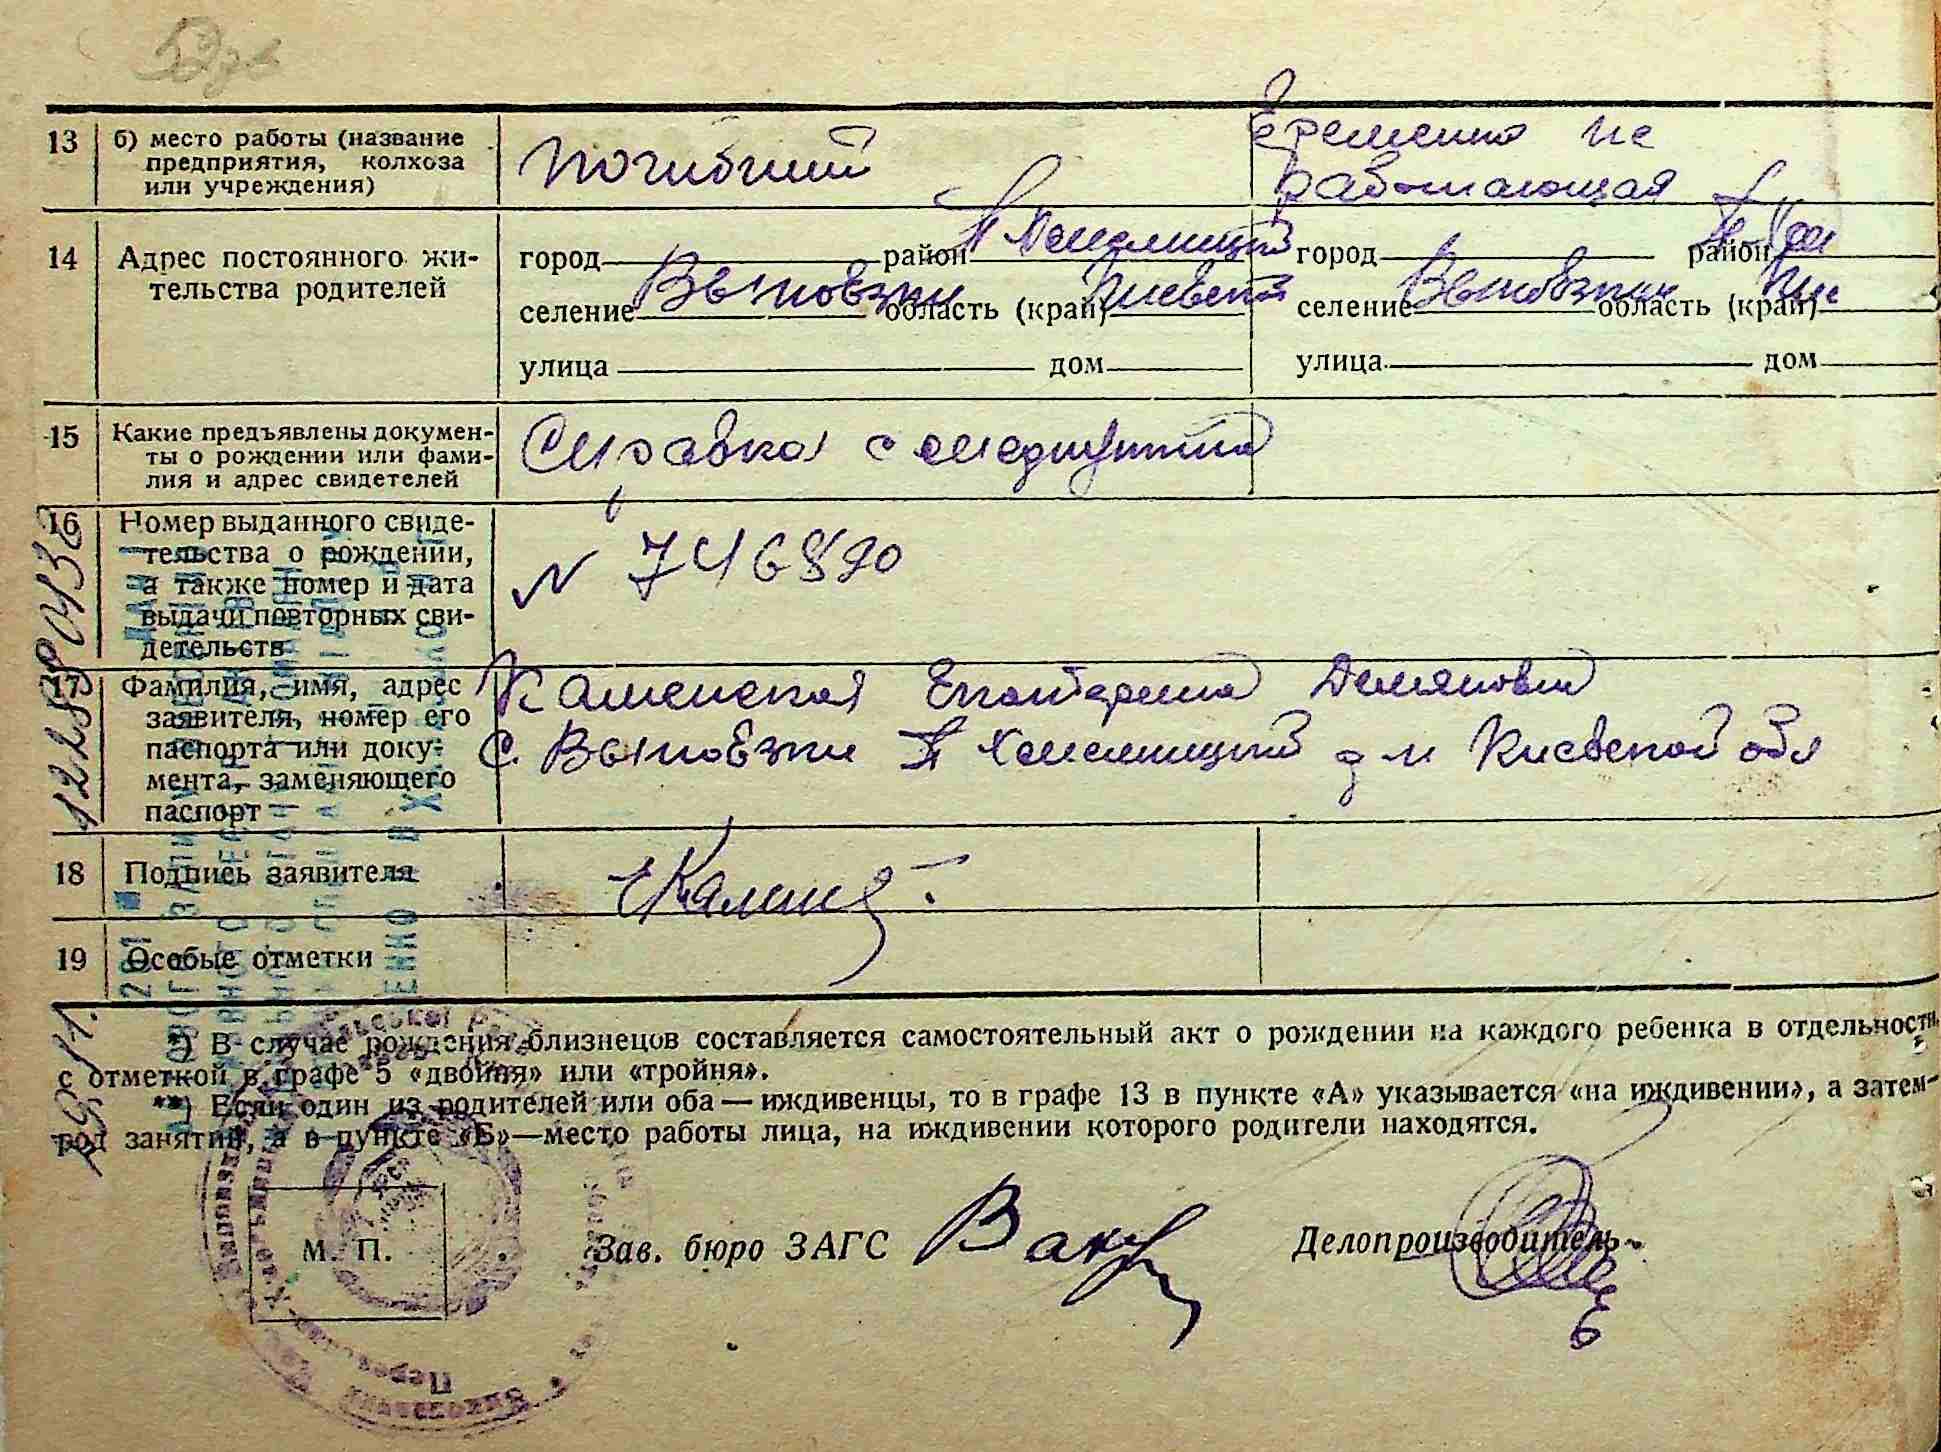 13 б) место работы (название предприятия, колхоза или учреждения)
погибший
Временно не
работающая
14 Адрес постоянного жительства родителей
город район П Хмелницкий
селение Выповзки область (край) Киевск
улица дом
город район П Хм
селение Выповзки область (край) Кие
улица дом
15 Какие предъявлены документы о рождении или фамилия и адрес свидетелей
Справка с медпункта
16 Номер выданного свидетельства о рождении, а также номер и дата выдачи повторных свидетельств
N 746890
17 Фамилия, имя, адрес заявителя, номер его паспорта или документа, заменяющего паспорт
Каменская Екатерина Демяновна
С. Выповзки П Хмелницкий р н Киевской обл
18 Подпись заявителя
19 Особые отметки
*) В случае рождения близнецов составляется самостоятельный акт о рождении на каждого ребенка в отдельности,
с отметкой в графе 5 «двойня» или «тройня».
**) Если один из родителей или оба — иждивенцы, то в графе 13 в пункте «А» указывается «на иждивении», а затем—
род занятий, а в пункте «Б»—место работы лица, на иждивении которого родители находятся.
М. П.
Зав. бюро ЗАГС
Делопроизводитель